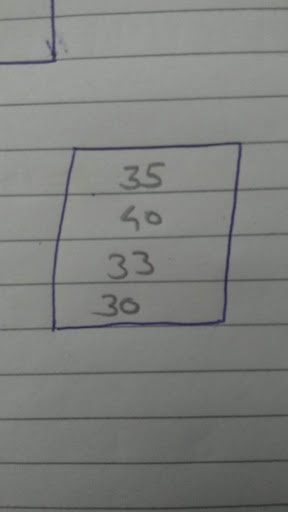 35
40
33
30